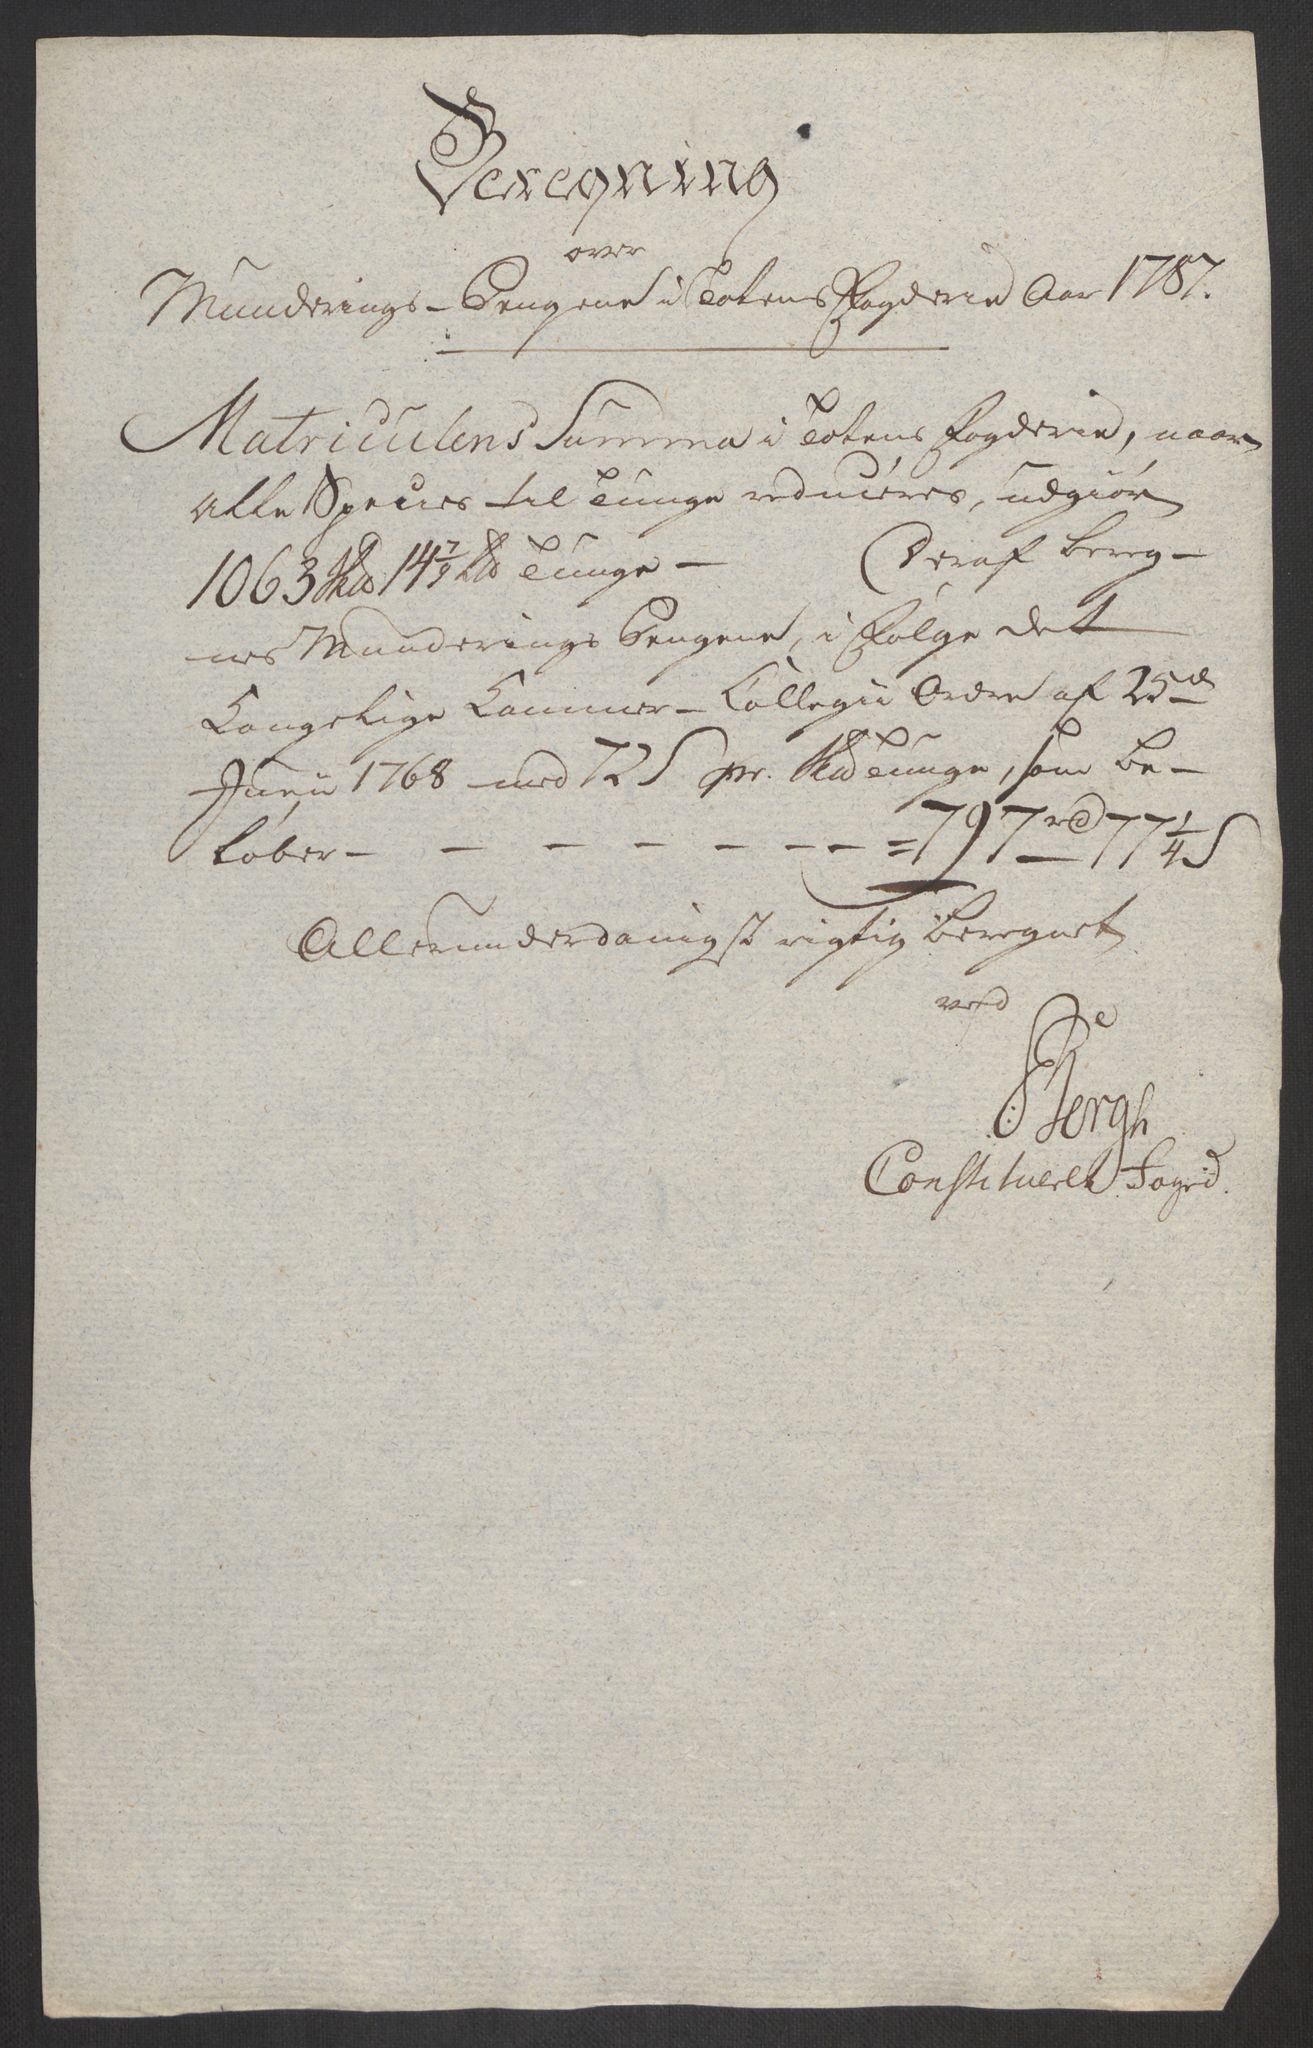 Beregning
over
Munderings-Pengene i Totens Fogderie Aar 1787.
Matriculens Summa i Totens Fogderie, naar
alle Species til Tunge reduceres, udgiør
1063 Skd 14 7/9 Ld Tunge - Deraf bereg-
nes Munderings Pengene, i Følge det
Kongelige Kammer-Collegii Ordre af 25de
Junii 1768 med 72 S pr. Skd Tunge, som be-
løber - - - - - - - - = 797 rd 77 1/4 S
Allerunderdanigst rigtig beregnet
ved
Bergh
Constitueret Foged.